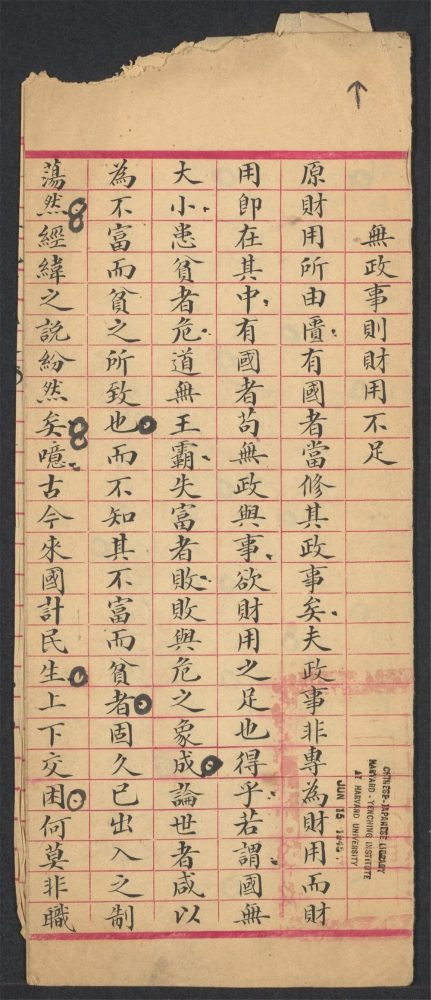 無政事則財用不足
原財用所由匱有國者當修其政事矣夫政事非專為財用而財
用即在其中有國者苟無政與事欲財用之足也得乎若謂國無
大小患貧者危道無王霸失富者敗敗與危之象成論世者咸以
為不富而貧之所致也而不知其不富而貧者固久已出入之制
蕩然經緯之說紛然矣噫古今來國計民生上下交困何莫非職
CHINESE-JAPANESE LIBRARY
HARVARD-YENCHING INSTITUTE
AT HARVARD UNIVERSITY
JUN 15 1945